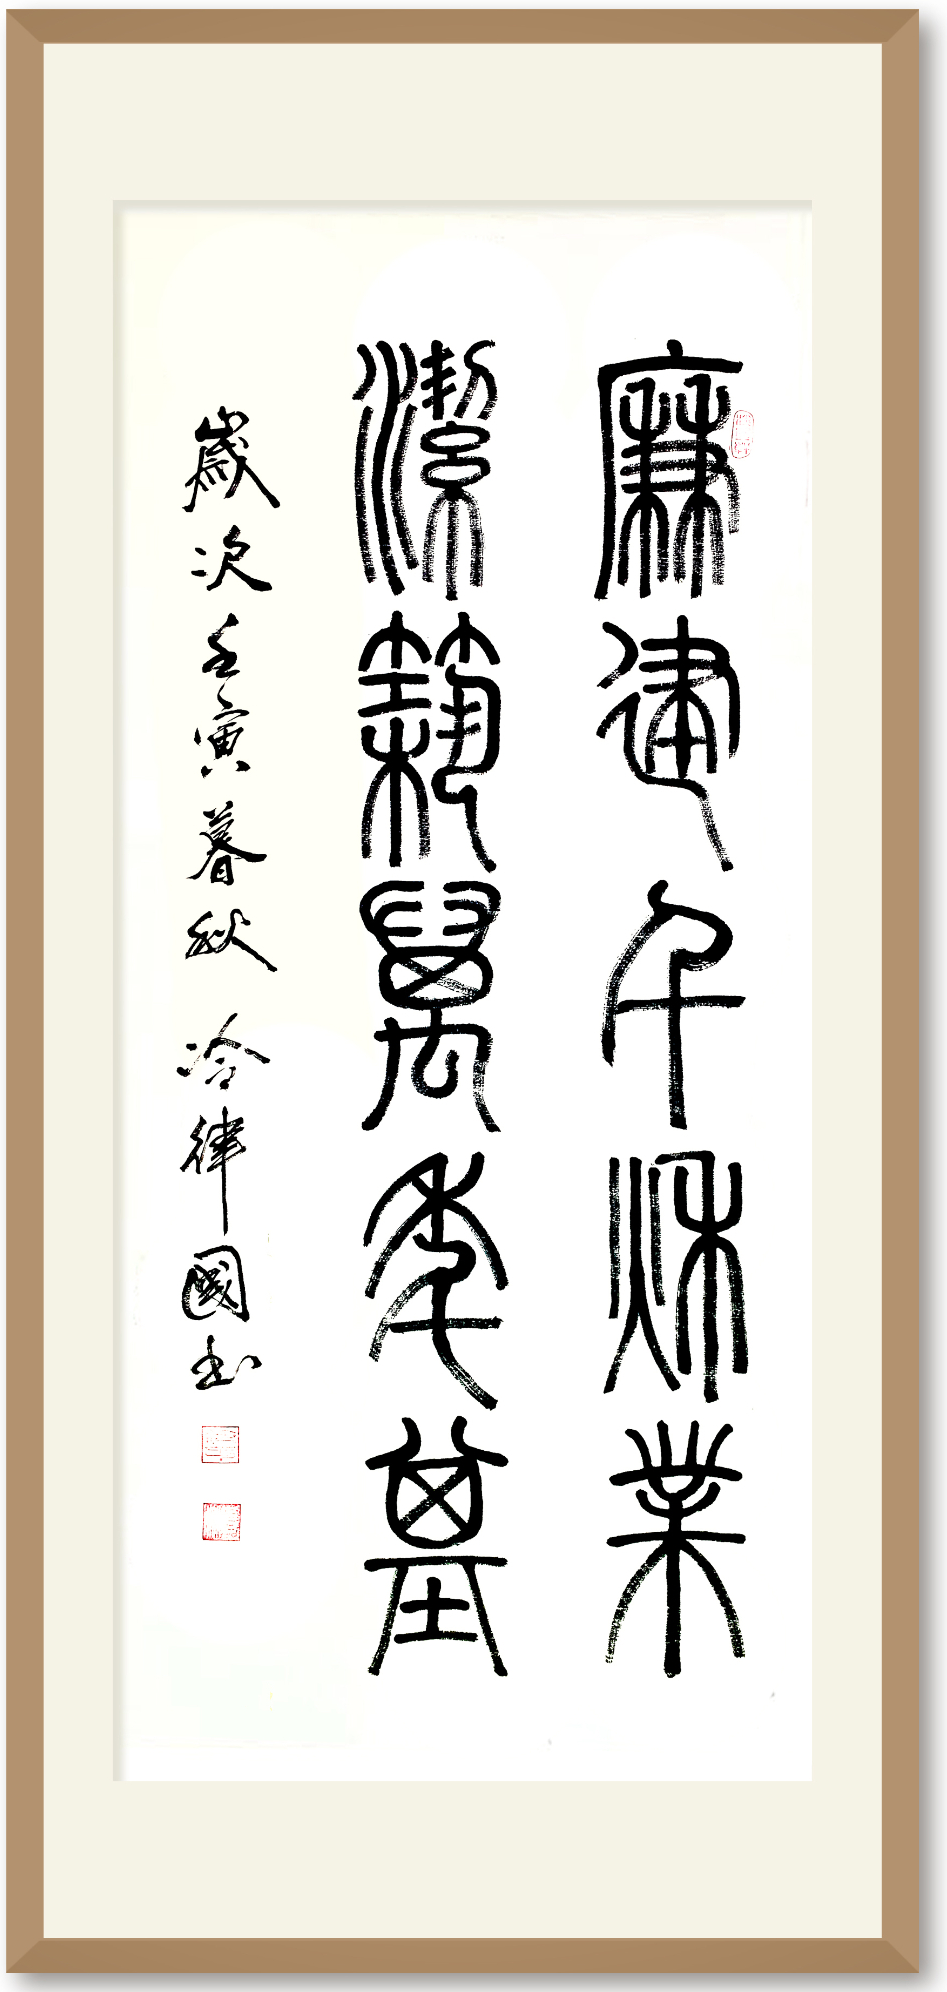 廉建千秋業
潔執萬年基
歲次壬寅暮秋 冷律國書